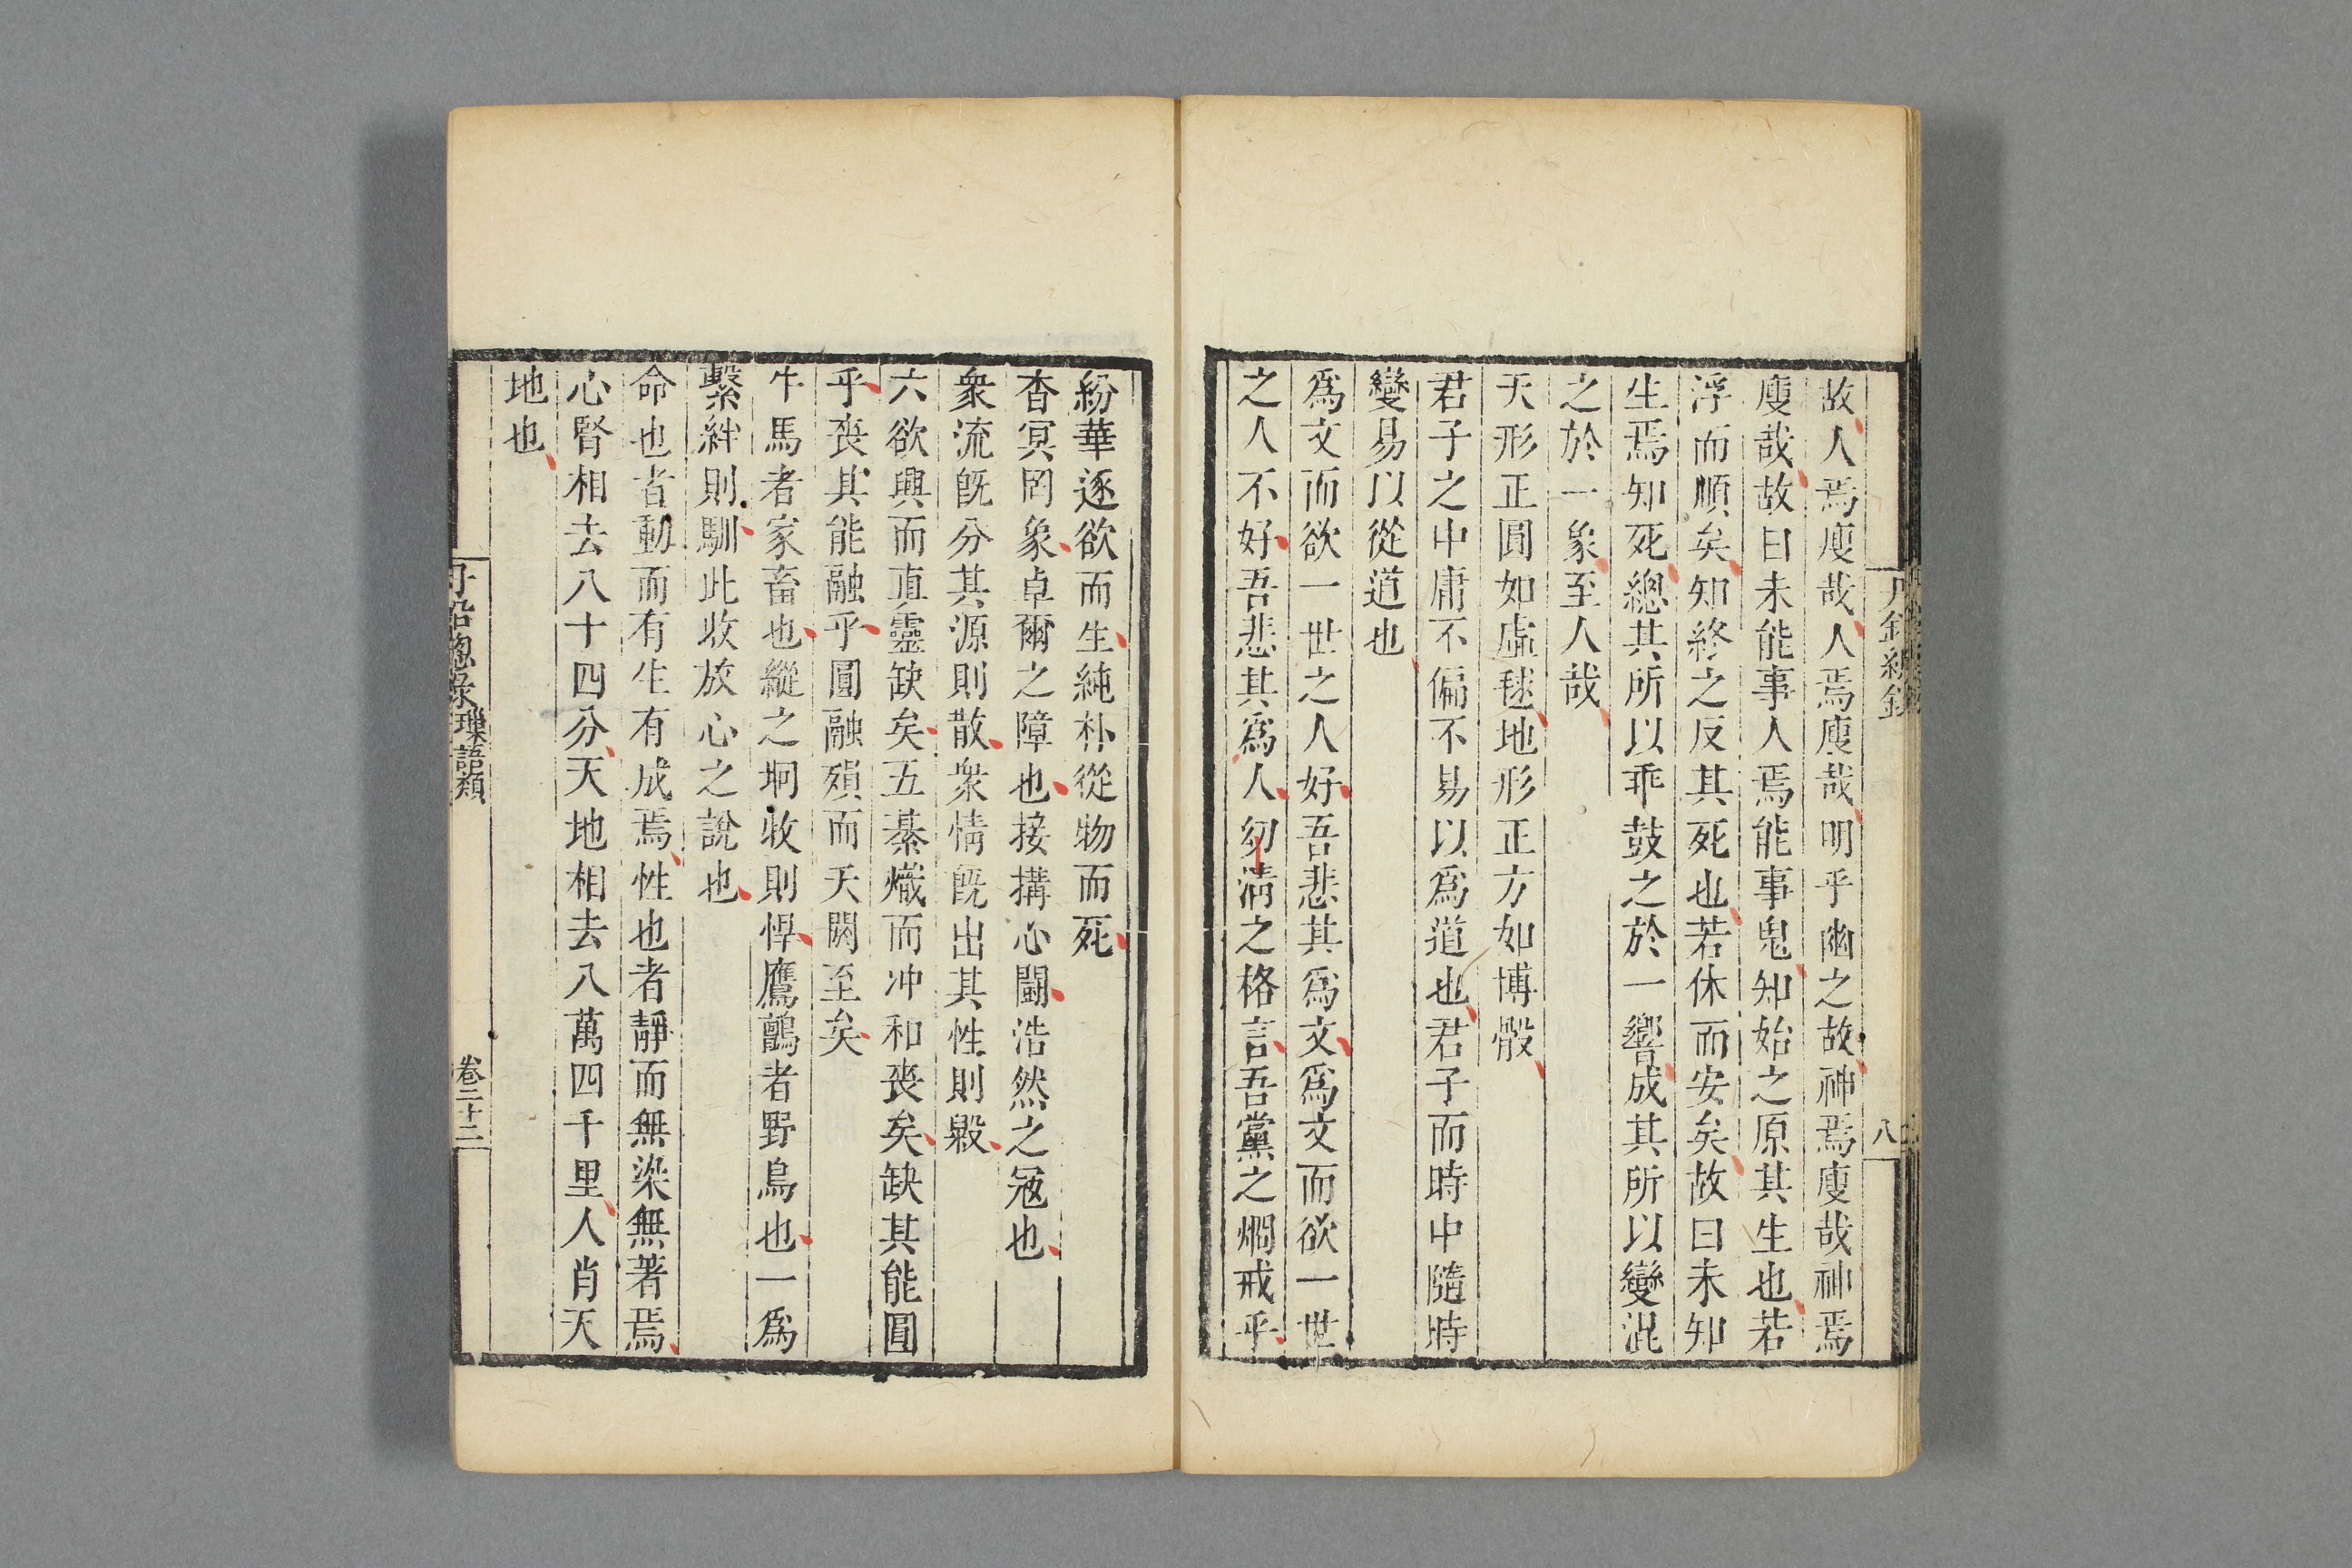 故人焉廋哉人焉廋哉明乎幽之故神焉廋哉神焉
廋哉故曰未能事人焉能事鬼知始之原其生也若
浮而順矣知終之反其死也若休而安矣故曰未知
生焉知死總其所以乖鼓之於一響成其所以變混
之於一象至人哉
天形正圓如虛毬地形正方如博骰
君子之中庸不偏不易以爲道也君子而時中隨時
變易以從道也
爲文而欲一世之人好吾悲其爲文爲文而欲一世
之人不好吾悲其爲人劉淸之格言吾黨之烱戒乎
八
紛華逐欲而生純朴從物而死
杳冥罔象卓爾之障也接搆心鬭浩然之冦也
衆流旣分其源則散衆情旣出其性則毀
六欲興而真靈缺矣五綦熾而冲和喪矣缺其能圓
乎喪其能融乎圓融殞而夭閼至矣
牛馬者家畜也縱之坰牧則悍鷹鸇者野鳥也一爲
繫絆則馴此收放心之說也
命也者動而有生有成焉性也者靜而無染無著焉
心腎相去八十四分天地相去八萬四千里人肖天
地也
丹鉛總录 璅語類 卷二十二